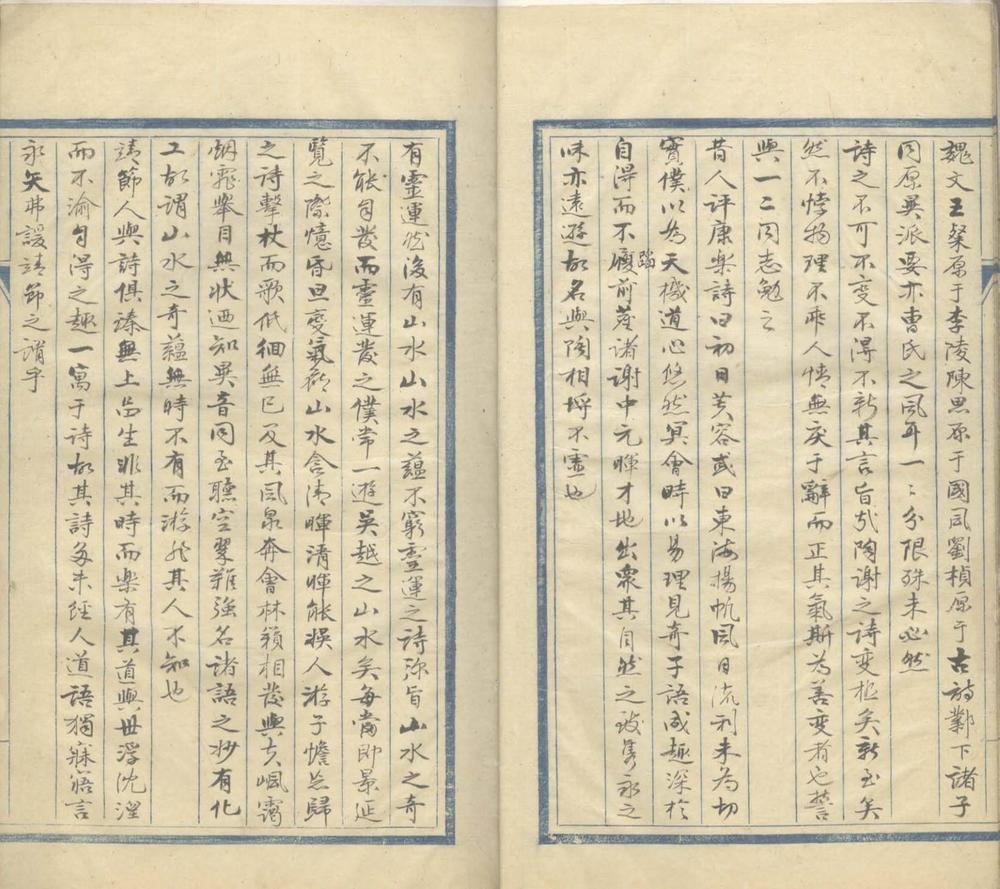 魏文王粲原于李陵陳思原于國風劉楨原于古詩鄴下諸子
同原異派要亦曹氏之風耳一〻分限殊未必然
詩之不可不变不得不新其言旨哉陶谢之詩变極矣新至矣
然不悖物理不乖人情無戾于辭而正其氣斯為善变者也誓
與一二同志勉之
昔人评康樂詩曰初日芙容或曰東海揚帆風日流利未為切
實僕以為天機道心悠然冥會時以易理見奇子語成趣深於
自得而不履前
蹈
諸谢中元暉才地出衆其自然之致隽永之
味亦遠遊故名與陶相埒不虚也
有靈運然後有山水山水之蕴不窮靈運之詩弥旨山水之奇
不能自發而靈運發之僕常一遊吴越之山水矣每當即景延
覽之際憶昏旦变氣候山水含清暉清暉能娱人游子憺忘歸
之詩擊杖而歌低徊無已及其風泉奔會林籟相發與夫岘靄
烟霏舉目無状迺知異音同至聽空翠難強名諸語之妙有化
工故謂山水之奇蕴無時不有而游非其人不知也
靖節人與詩俱臻無上品生非其時而樂有其道與世浮沈涅
而不渝自得之趣一寓于詩故其詩多未經人道語獨寐寤言
永矢弗諼靖節之謂乎